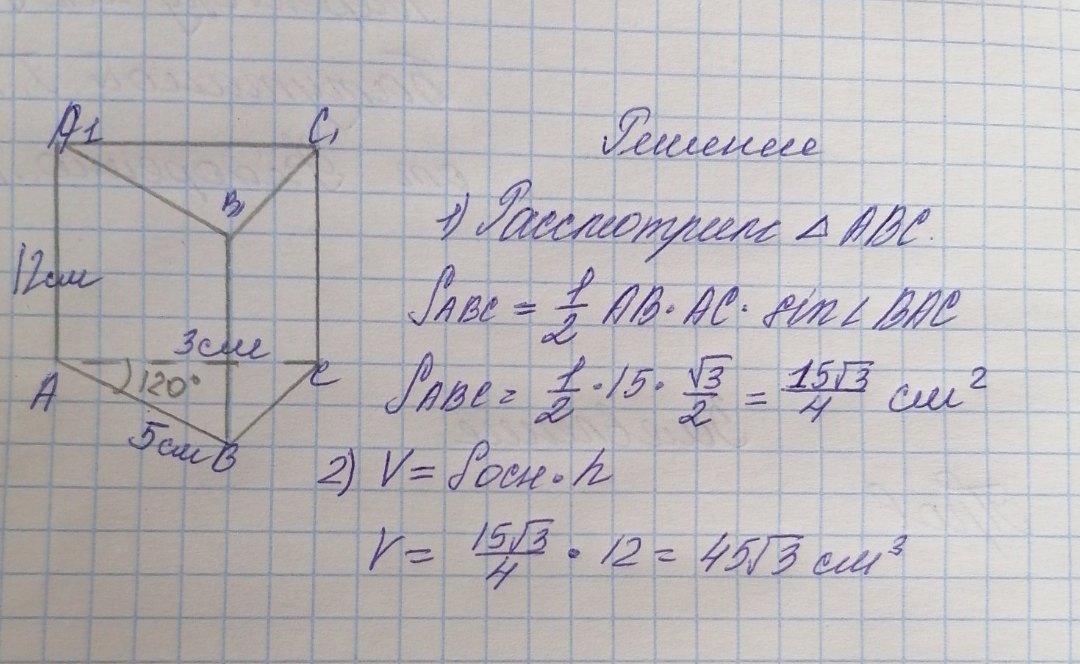 A1
C1
B1
12см
3см
A
120°
C
5см
B
Решение
1) Рассмотрим △ ABC.
SABC = 1/2 AB · AC · sin∠BAC
SABC = 1/2 · 15 · √3/2 = 15√3/4 см²
2) V = Sосн · h
V = 15√3/4 · 12 = 45√3 см³